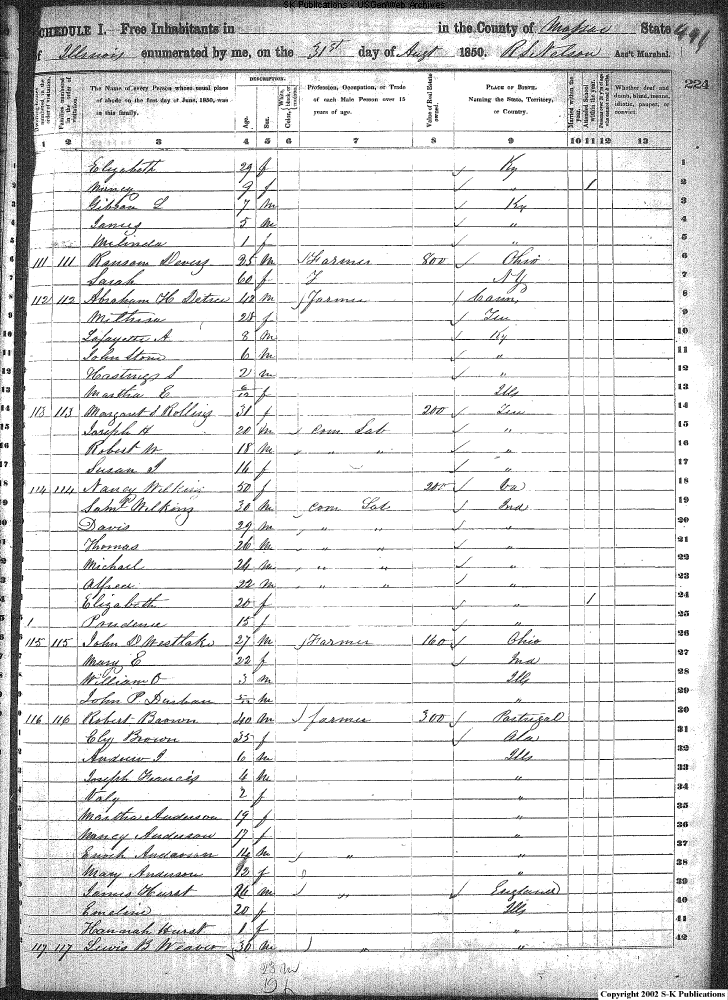 SCHEDULE I. Free Inhabitants in in the County of Massac State
of Illinois enumerated by me, on the 31st day of Augt 1850. Ass't Marshal.
224
The Name of every Person whose usual place of abode on the first day of June, 1850, was in this family.
DESCRIPTION.
Age.
Sex.
Profession, Occupation, or Trade of each Male Person over 15 years of age.
Value of Real Estate owned.
PLACE OF BIRTH. Naming the State, Territory, or Country.
Whether deaf and dumb, blind, insane, idiotic, pauper, or convict.
1 2 3 4 5 6 7 8 9 10 11 12 13
Elizabeth 29 f Ky 1
9 f " 1 2
Gibson L 7 m Ky 3
James 5 m " 4
Melinda 1 f " 5
111 111 Ransom Devers 25 m Farmer 800 Ohio 6
Sarah 60 f N.Y 7
112 112 Abraham H Detree 42 m Farmer 8
28 f Ten 9
Lafayette A 8 m Ky 10
John Stone 6 m " 11
Hastings S 2 m " 12
Martha E f Ills 13
113 113 Margaret S Rolling 31 f 200 Ten 14
Joseph H 20 m com Lab " 15
Robert W 18 m " " " 16
Susan J 16 f " 17
114 114 Nancy Wilkins 50 f 200 Va 18
Saml Wilkins 30 m com Lab Ind 19
Davis 29 m " " " 20
Thomas 26 m " " " 21
Michael 24 m " " " 22
Alfred 22 m " " " 23
Elizabeth 20 f " 1 24
1 Prudence 15 f " 25
115 115 John D Westlake 27 m Farmer 160 Ohio 26
Mary E 22 f Ind 27
William O 3 m Ills 28
John P m " 29
116 116 Robert Brown 40 m farmer 300 Portugal 30
Ely Brown 35 f Ala 31
Andrew J 6 m Ills 32
Joseph Francis 4 m " 33
2 f " 34
Martha Anderson 19 f " 35
Nancy Anderson 17 f " 36
Enoch Anderson 14 m " " 37
Mary Anderson 12 f " 38
James Hurst 26 m " England 39
Emeline 20 f Ills 40
Hannah Hurst 1 f " 41
117 117 Lewis B Weaver 30 m " " 42
23 m
Copyright 2002 S-K Publications